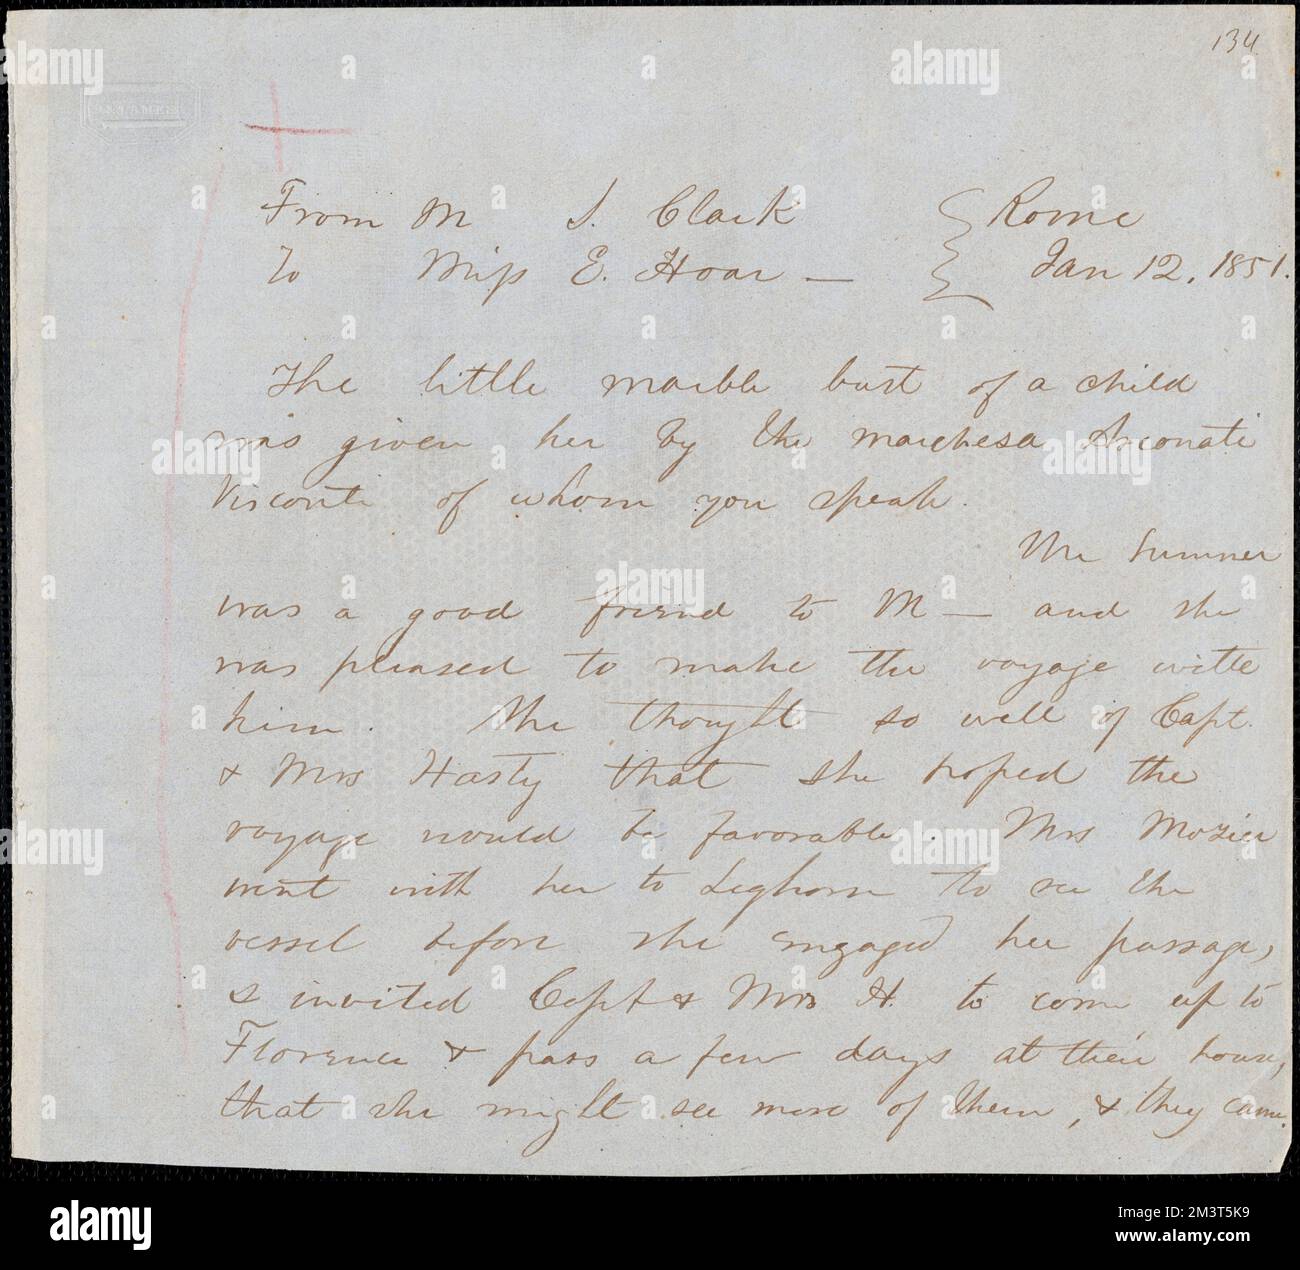 134
From M S. Clark Rome
To Miss E. Hoar — Jan 12, 1851.
The little marble bust of a child
was given her by the marchesa Arconati
Visconti of whom you speak.
Mr Sumner
was a good friend to M — and she
was pleased to make the voyage with
him. She thought so well of Capt.
& Mrs Hasty that she hoped the
voyage would be favorable. Mrs Mozier
went with her to Leghorn to see the
vessel before she engaged her passage,
& invited Capt & Mrs H. to come up to
Florence & pass a few days at their house,
that she might see more of them, & they came.
alamy
Image ID: 2M3T5K9
www.alamy.com